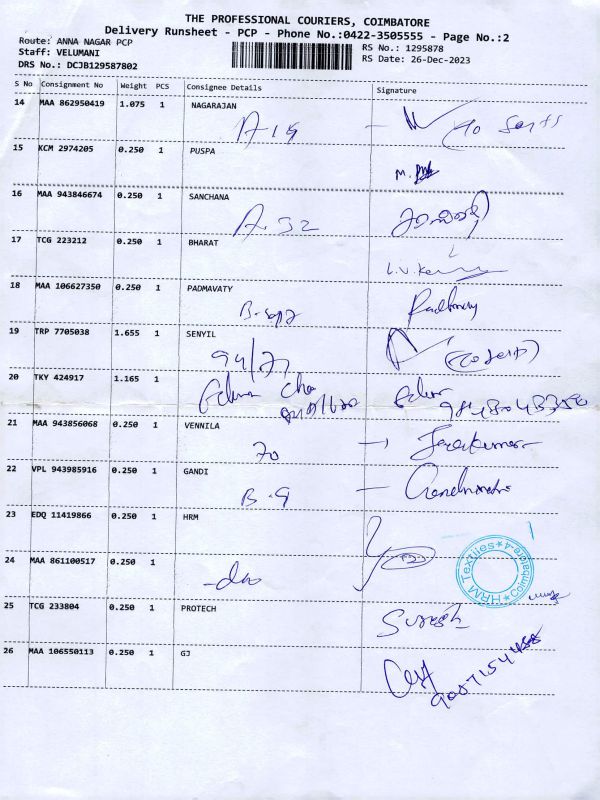 THE PROFESSIONAL COURIERS, COIMBATORE
Delivery Runsheet - PCP - Phone No.:0422-3505555 - Page No.:2
Route: ANNA NAGAR PCP RS No.: 1295878
Staff: VELUMANI RS Date: 26-Dec-2023
DRS No.: DCJB129587802
S No Consignment No Weight PCS Consignee Details Signature
14 MAA 862950419 1.075 1 NAGARAJAN
A-19
15 KCM 2974205 0.250 1 PUSPA
16 MAA 943846674 0.250 1 SANCHANA
A-32
17 TCG 223212 0.250 1 BHARAT
18 MAA 106627350 0.250 1 PADMAVATY
19 TRP 7705038 1.655 1 SENYIL
94/77
20 TKY 424917 1.165 1
21 MAA 943856068 0.250 1 VENNILA
70
22 VPL 943985916 0.250 1 GANDI
B-9
23 EDQ 11419866 0.250 1 HRM
HRM Textiles * Coimbatore-4 *
24 MAA 861100517 0.250 1
-do
25 TCG 233804 0.250 1 PROTECH
Suresh
26 MAA 106550113 0.250 1 GJ